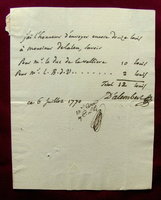 j'ai l'honneur d'envoyer encore douze louis
à monsieur Delalen, savoir
Pour Mr. le Duc de la Valliere 10 louis
Pour Mr. L. B. D. V. 2 louis
Total 12 louis
D'alembert
ce 6 juillet 1770